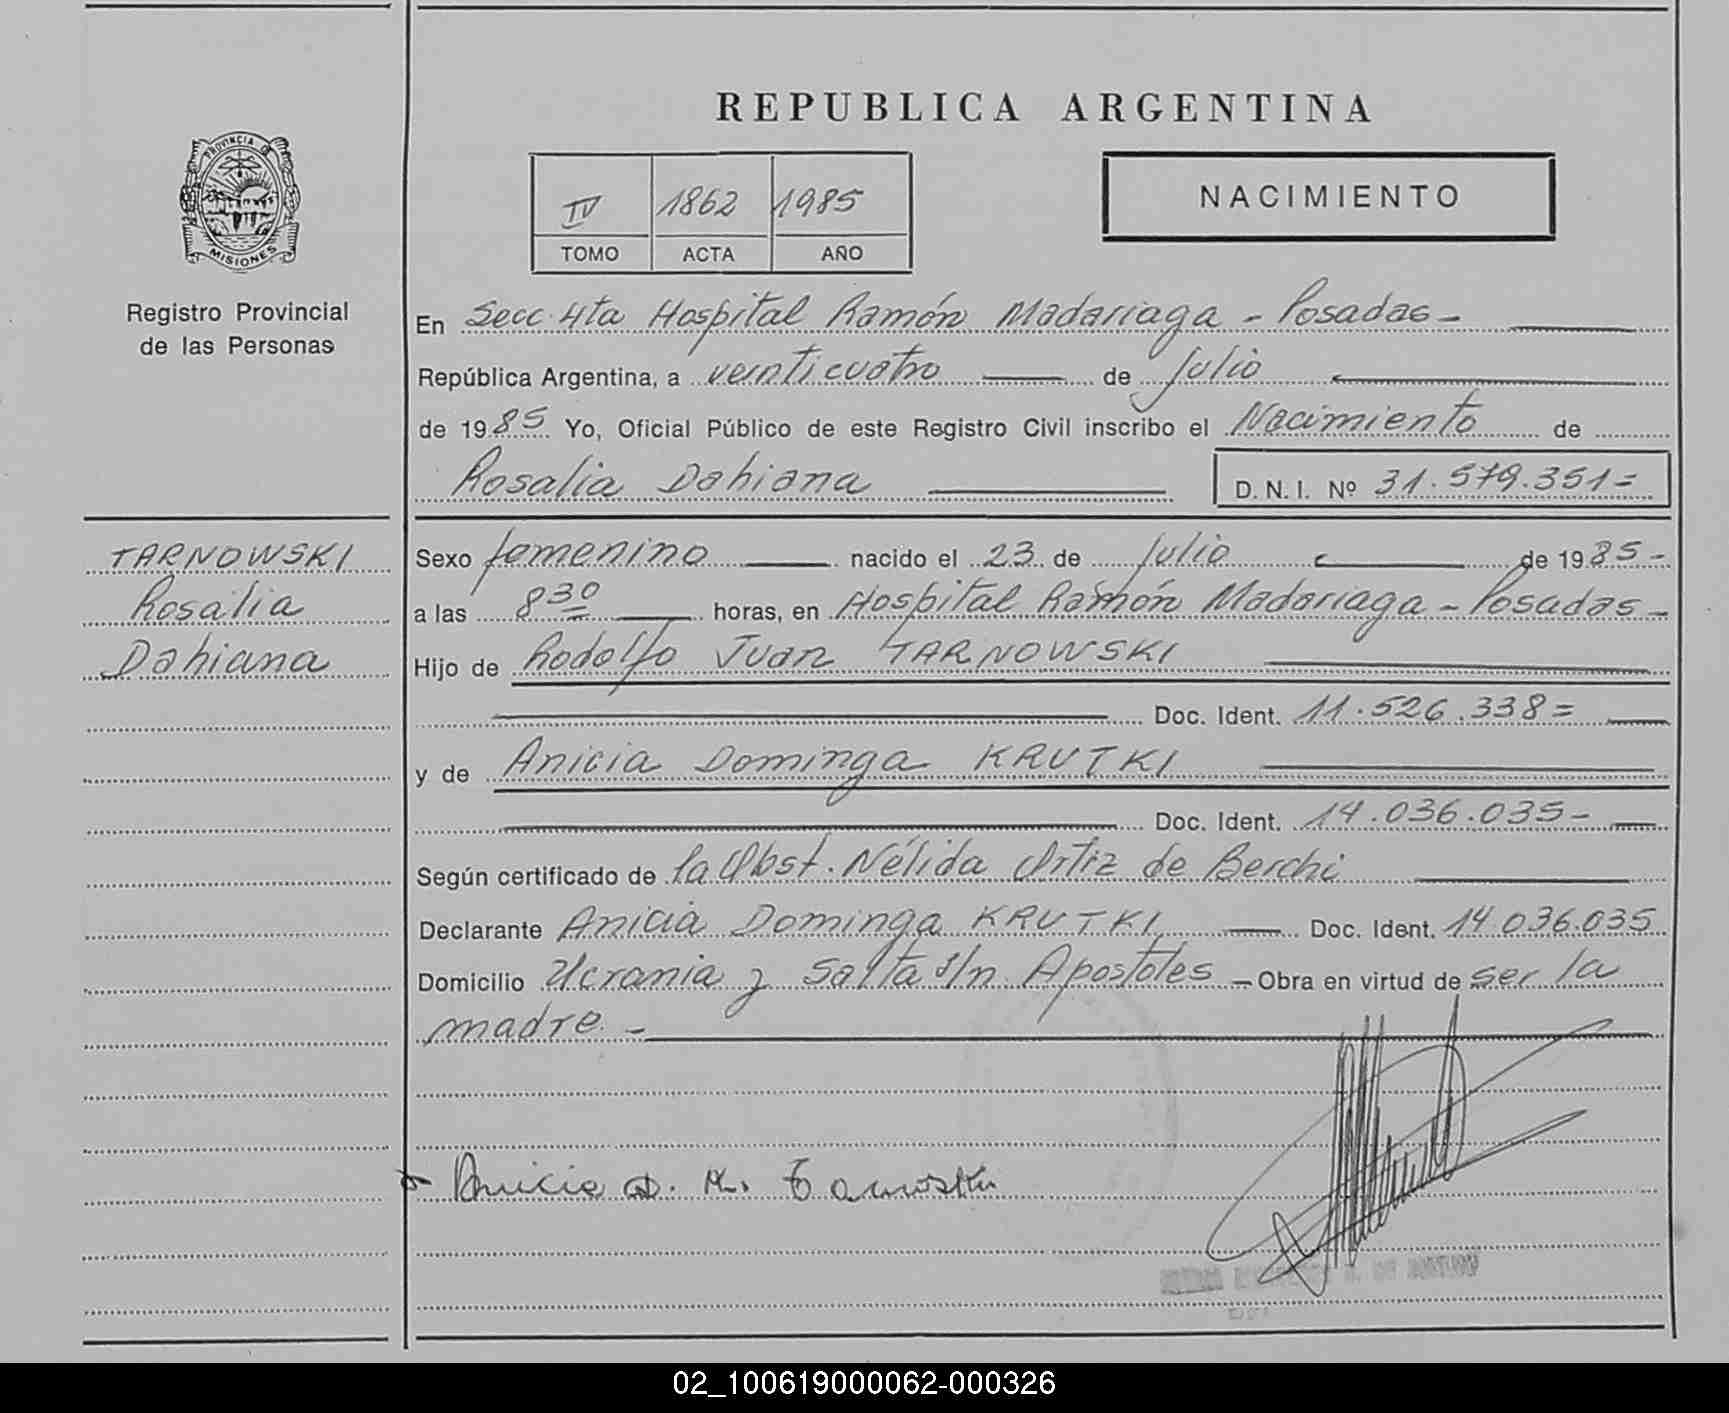 REPUBLICA ARGENTINA
PROVINCIA DE
MISIONES
Registro Provincial
de las Personas
IV 1862 1985
TOMO ACTA AÑO
NACIMIENTO
En Secc. 4ta Hospital Ramón Madariaga - Posadas -
República Argentina, a veinticuatro de Julio
de 1985 Yo, Oficial Público de este Registro Civil inscribo el Nacimiento de
Rosalia Dahiana D. N. I. Nº 31.579.351=
TARNOWSKI
Rosalia
Dahiana
Sexo femenino nacido el 23 de Julio de 1985-
a las 8 30 horas, en Hospital Ramón Madariaga - Posadas -
Hijo de Rodolfo Juan TARNOWSKI
Doc. Ident. 11.526.338=
y de Anicia Dominga KRUTKI
Doc. Ident. 14.036.035-
Según certificado de la Obst. Nélida Ortiz de Berchi
Declarante Anicia Dominga KRUTKI Doc. Ident. 14.036.035
Domicilio Ucrania y Salta s/n Apostoles - Obra en virtud de ser la
madre. -
Anicia D. K.
02_100619000062-000326